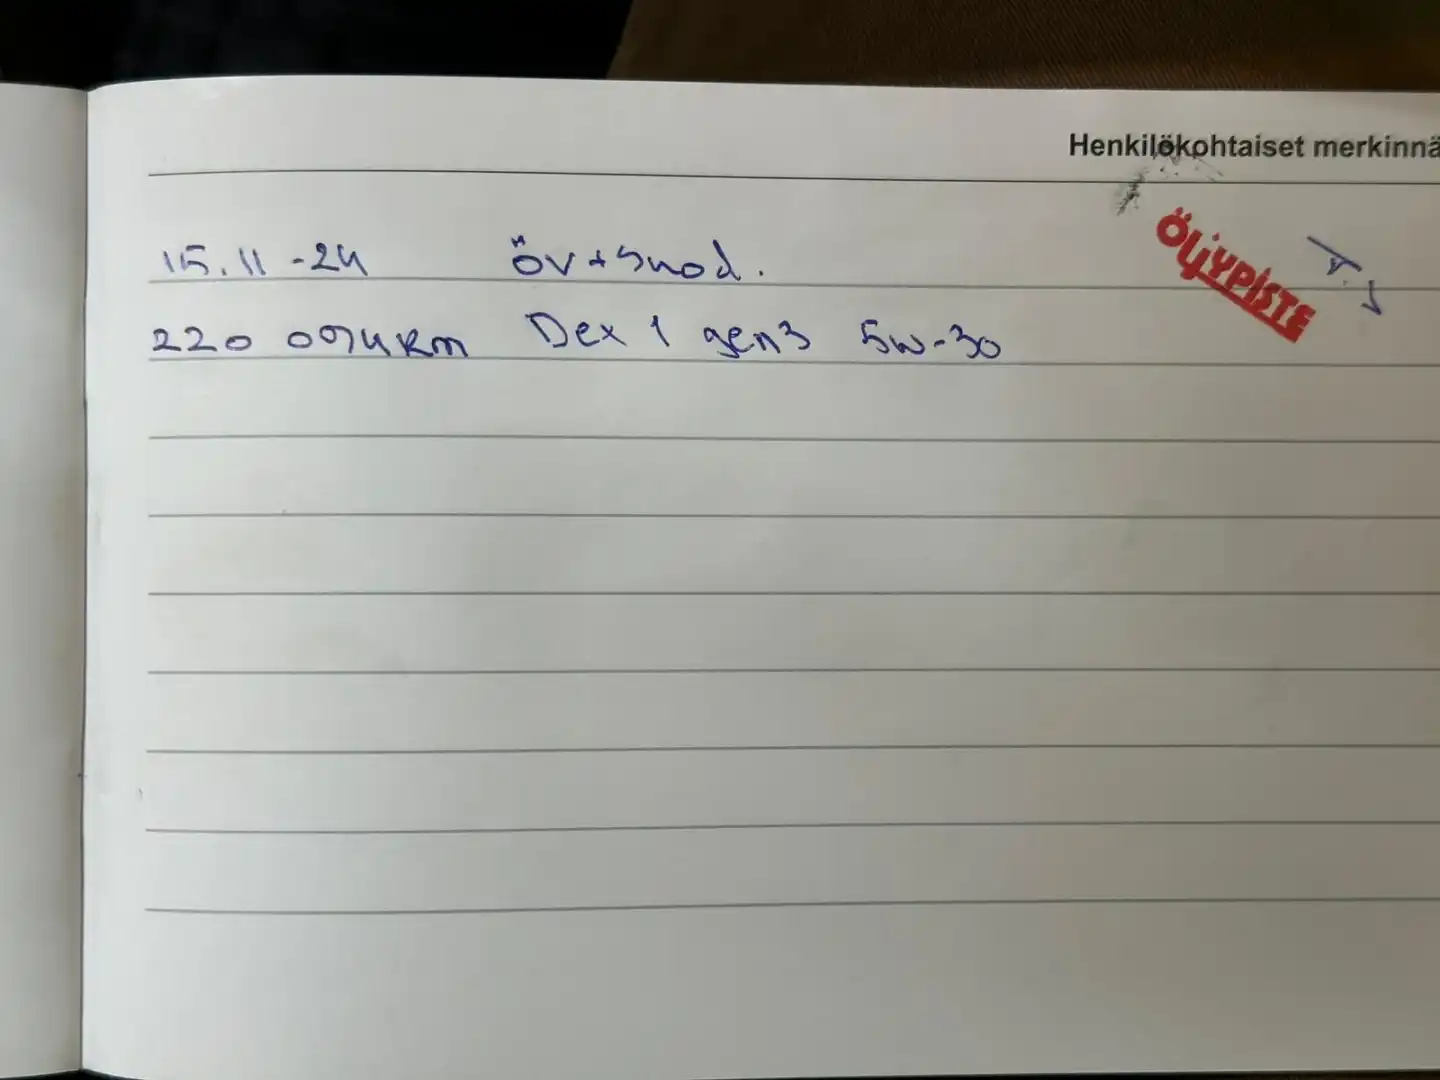 Henkilökohtaiset merkinnä
ÖLJYPISTE
15.11-24 öv+Suod.
220 094km Dex 1 gen3 5w-30